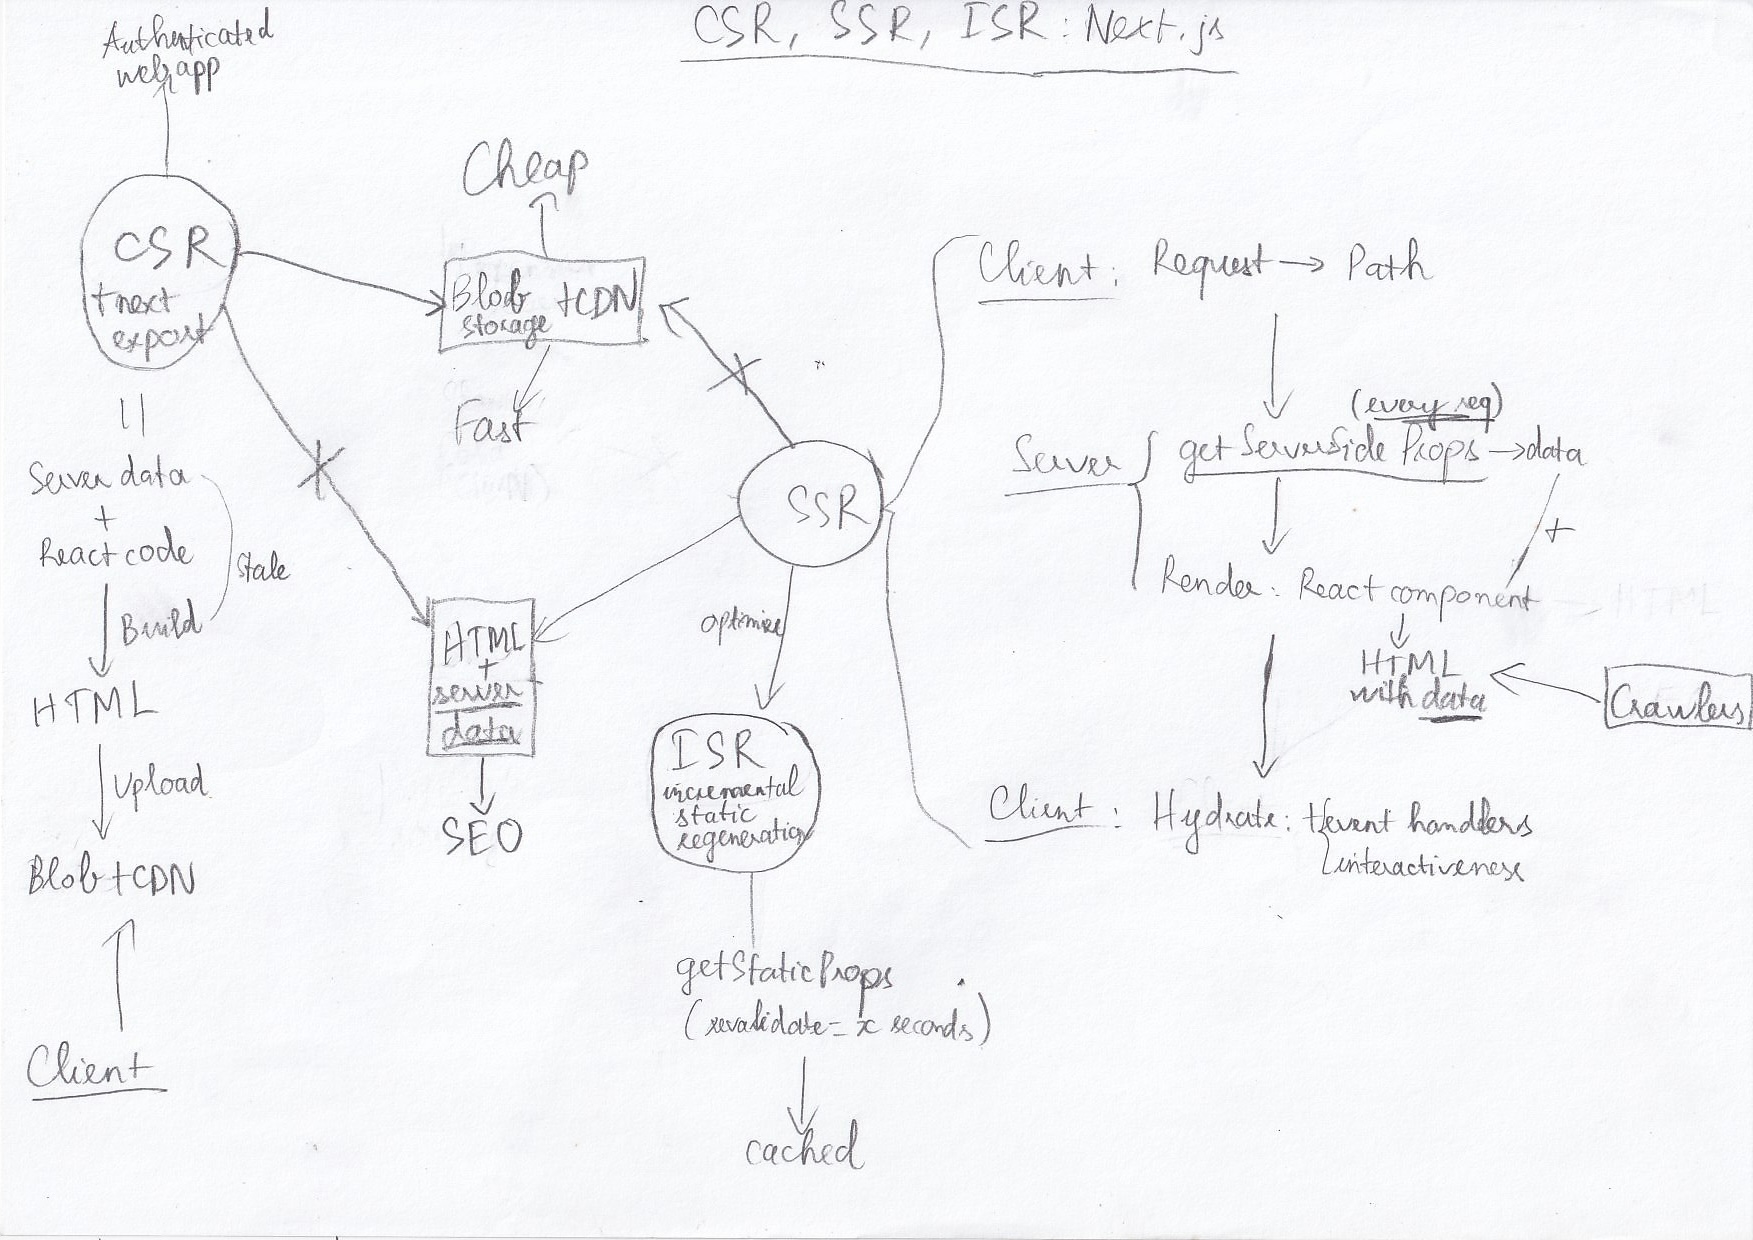 CSR, SSR, ISR : Next.js
Authenticated
web app
CSR
+ next
export
Server data
+
React code
Stale
Build
HTML
Upload
Blob + CDN
Client
Cheap
Blob + CDN
storage
Fast
HTML
+
server
data
SEO
SSR
optimize
ISR
incremental
static
regeneration
getStaticProps
(revalidate = x seconds)
cached
Client : Request → Path
(every req)
Server { getServerSide Props → data
+
Render : React component
HTML
with data
Crawlers
Client : Hydrate : + event handlers
interactiveness